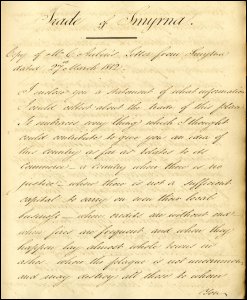 Trade of Smyrna.
Copy of Mr. E. Letter from Smyrna
dated 27th March 1812.
I inclose you a statement of what information
I could collect about the trade of this place
to embrace every thing which I thought
could contribute to give you an idea of
this country as far as relates to its
commerce - a country where there is no
justice - where there is not a sufficient
capital to carry on even their local
business - where credits are without end
when fires are frequent, and when they
happen lay almost whole towns in
ashes where the plague is not uncommon
and may destroy all those to whom